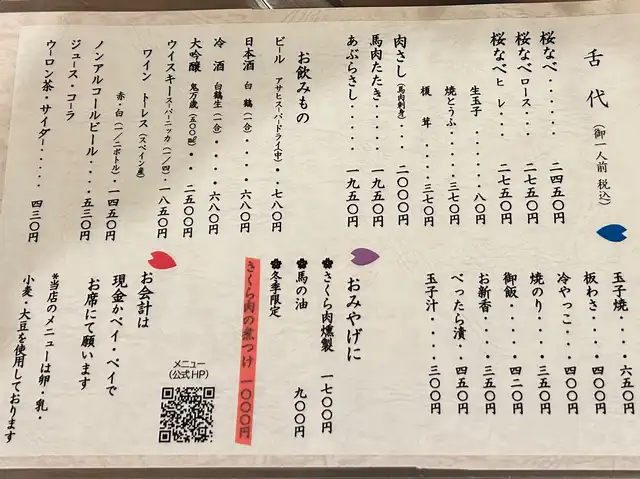 舌代(御一人前 税込)
桜なべ・・・・・二四五〇円
桜なべロース・・・二七五〇円
桜なべヒレ・・・・二七五〇円
生玉子・・・・・八〇円
焼とうふ・・・・三七〇円
榎茸・・・・・三七〇円
肉さし(馬肉刺身)・・二〇〇〇円
馬肉たたき・・・・一九五〇円
あぶらさし・・・・一九五〇円
お飲みもの
ビール アサヒスーパードライ(中)・七八〇円
日本酒 白鶴(一合)・・・六八〇円
冷酒 白鶴生(一合)・・・・六八〇円
大吟醸 鬼万歳(五〇〇㎖)・・二五〇〇円
ウイスキー スーパーニッカ(一/四)・一八五〇円
ワイン トーレス(スペイン産)
赤・白(一/二ボトル)・一四五〇円
ノンアルコールビール・・・・五三〇円
ジュース・コーラ
ウーロン茶・サイダー・・・・・四三〇円
玉子焼・・・・六五〇円
板わさ・・・・四〇〇円
冷やっこ・・・四〇〇円
焼のり・・・・三五〇円
御飯・・・・・四二〇円
お新香・・・・三五〇円
べったら漬・・四五〇円
玉子汁・・・・三〇〇円
おみやげに
さくら肉燻製 一七〇〇円
馬の油 九〇〇円
冬季限定
さくら肉の煮つけ 一〇〇〇円
メニュー
(公式HP)
お会計は
現金かペイ・ペイで
お席にて願います
*当店のメニューは卵・乳・
小麦・大豆を使用しております